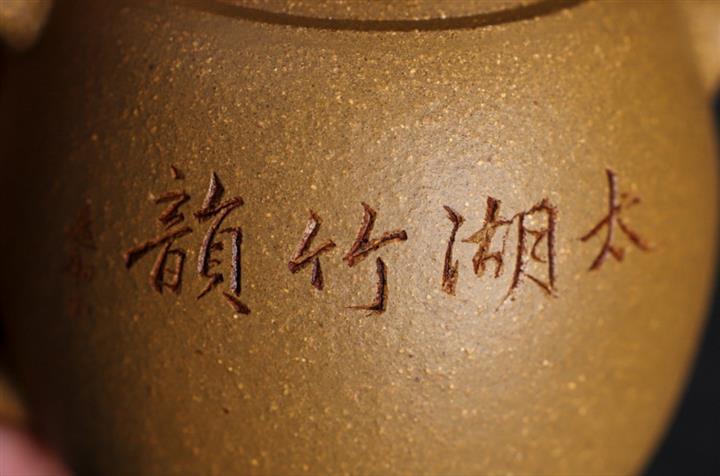 太湖竹韻